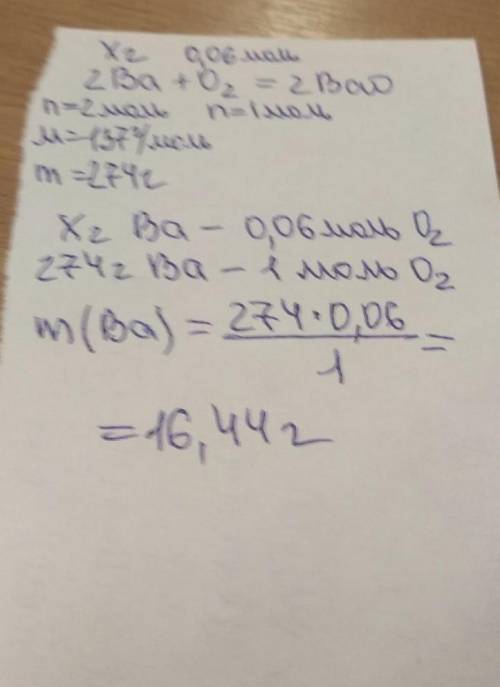 xг 0,06 моль
2Ba + O₂ = 2BaO
n=2моль n=1моль
M=137г/моль
m=274г
Xг Ba – 0,06 моль O₂
274г Ba – 1 моль O₂
m(Ba) = 274·0,06 / 1 =
= 16,44 г